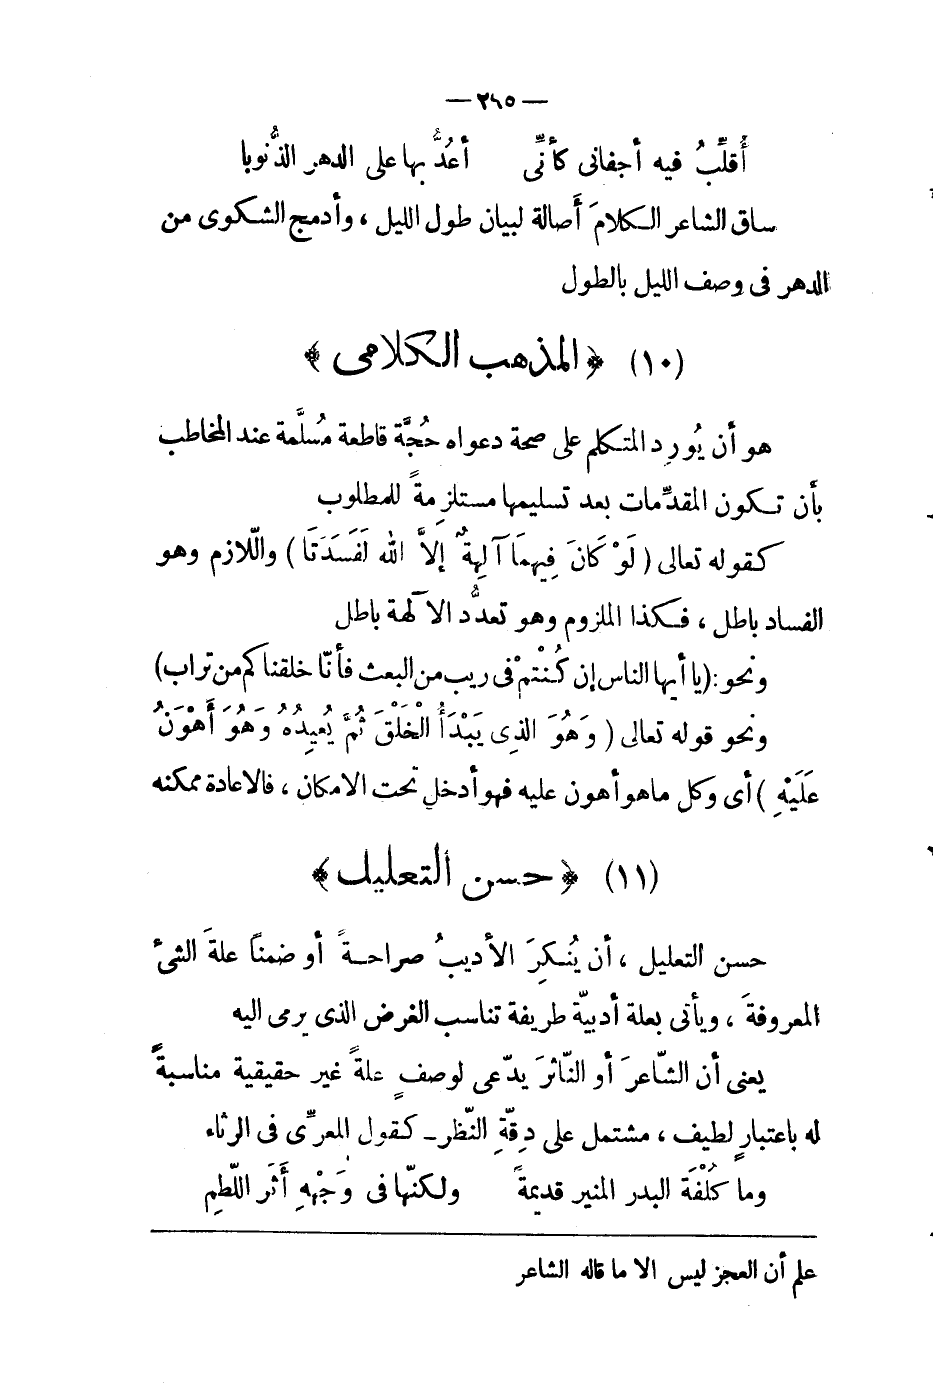 — ٢٦٥ —
أُقلِّبُ فيه أجفانى كأنِّى أعُدُّ بها على الدهر الذُّنوبا
ساق الشاعر الكلامَ أَصالة لبيان طول الليل ، وأدمج الشكوى من
الدهر فى وصف الليل بالطول
(١٠) ﴿ المذهب الكلامى ﴾
هو أن يُورِد المتكلم على صحة دعواه حُجَّة قاطعة مُسلَّمة عند المخاطب
بأن تكون المقدِّمات بعد تسليمها مستلزِمةً للمطلوب
كقوله تعالى ( لَوْ كَانَ فِيهِمَا آلِهَةٌ إِلاَّ اللهُ لَفَسَدَتَا ) واللّازم وهو
الفساد باطل ، فكذا الملزوم وهو تعدُّد الآلهة باطل
ونحو : (يا أيها الناس إن كُنْتُمْ فى ريب من البعث فأنّا خلقناكم من تراب)
ونحو قوله تعالى ( وَهُوَ الذِى يَبْدَأُ الْخَلْقَ ثُمَّ يُعِيدُهُ وَهُوَ أَهْوَنُ
عَلَيْهِ ) أى وكل ماهو أهون عليه فهو أدخل تحت الامكان ، فالاعادة ممكنه
(١١) ﴿ حسن ألتعليل ﴾
حسن التعليل ، أن يُنكِرَ الأديبُ صراحةً أو ضمنًا علةَ الشئ
المعروفةَ ، ويأتى بعلة أدبيّة طريفة تناسب الغرض الذى يرمى اليه
يعنى أن الشّاعرَ أو النّاثرَ يدّعى لوصفٍ علةً غير حقيقية مناسبةً
له باعتبارٍ لطيف ، مشتمل على دِقّةِ النّظر ـ كقول المعرّى فى الرثاء
وما كُلْفَة البدر المنير قديمةً ولكنّها فى وَجْهِهِ أَثَر اللّطمِ
علم أن العجز ليس الا ما قاله الشاعر